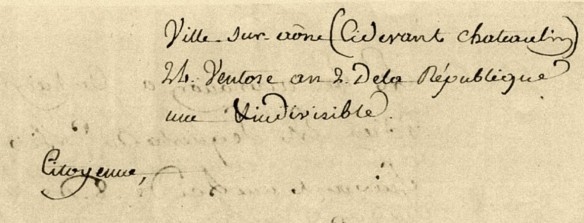 Ville sur aône (Cidevant chateaulin)
24. Ventose an 2. Dela République
une & indivisible.
Citoyenne,